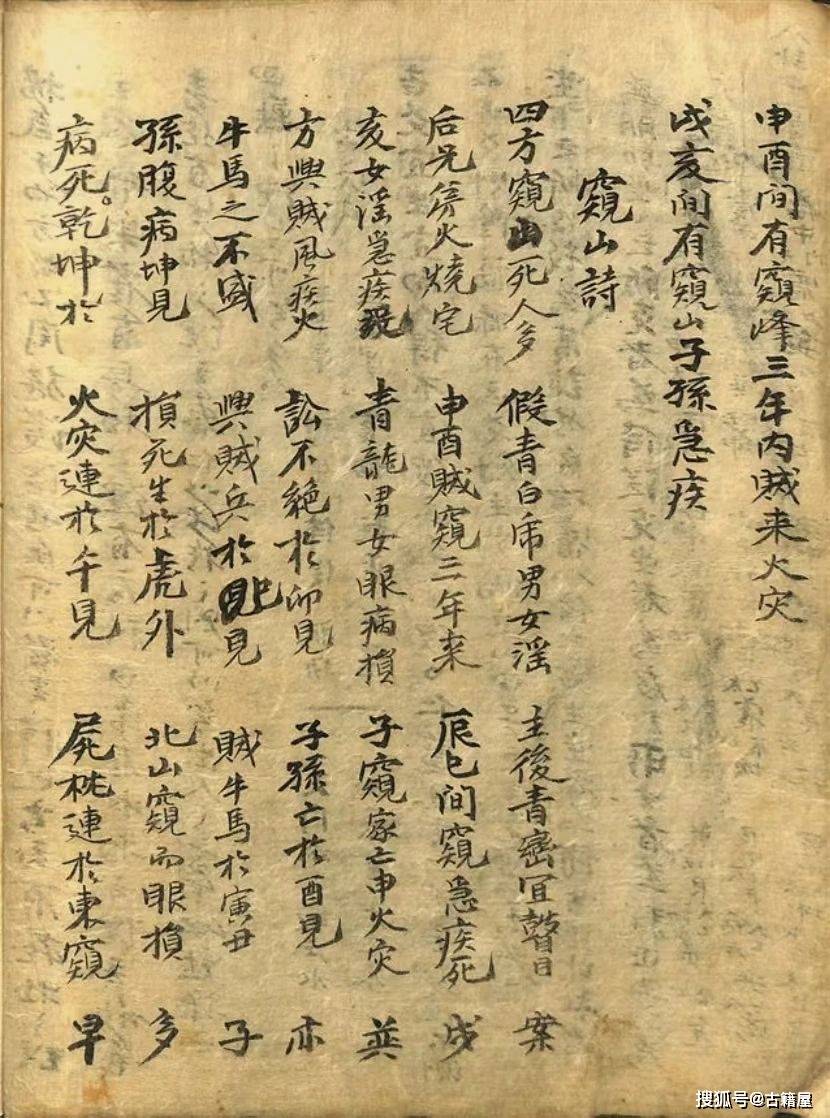 申酉間有窺峰三年内賊来火灾
戌亥間有窺山子孫急疾
窺山詩
四方窺山死人多 假青白帍男女淫 主後青窓冝瞽目 案
后兄弟火燒宅 申酉賊窺三年来 辰巳間窺急疾死 戌
亥女淫急疾 青龍男女眼病損 子窺家亡申火灾 並
方興賊風疾火 訟不絶於卯見 子孫亡於酉見 亦
牛馬之不盛 興賊兵於見 賊牛馬於寅丑 子
孫腹病坤見 損死生於虎外 北山窺而眼損 多
病死。乾坤於 火灾連於午見 屍枕連於東窺 早
搜狐号@古籍屋